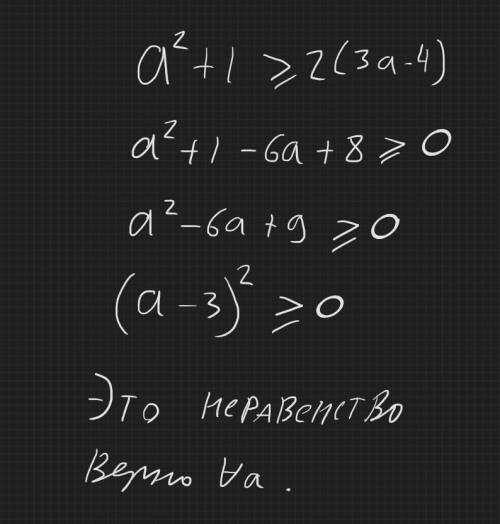 a² + 1 ⩾ 2(3a - 4)
a² + 1 - 6a + 8 ⩾ 0
a² - 6a + 9 ⩾ 0
(a - 3)² ⩾ 0
Это неравенство
верно ∀a.